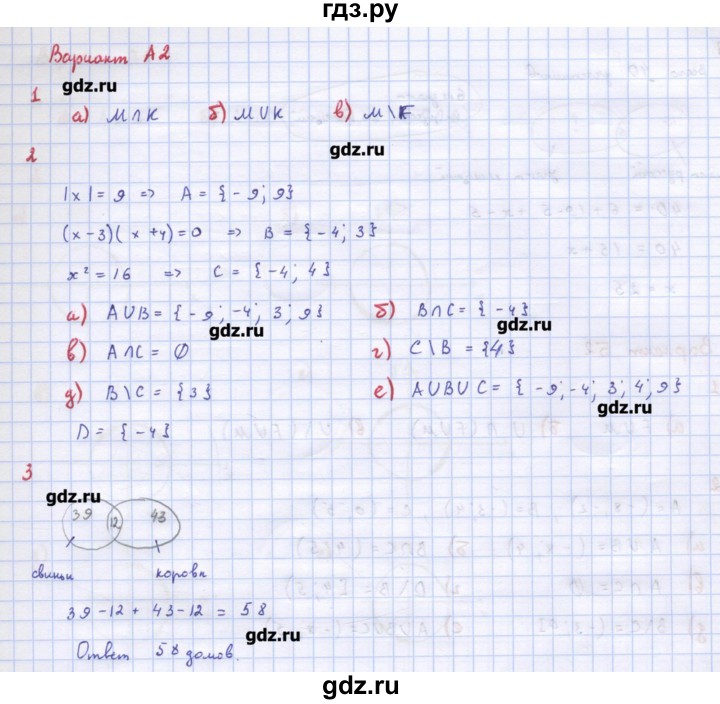 гдз.ру
Вариант А2
gdz.ru
1
а) M∩K б) M∪K в) M\F
gdz.ru
2
|x|=9 => A = {-9; 9}
(x-3)(x+4)=0 => B = {-4; 3}
x²=16 => C = {-4; 4}
а) A∪B = {-9; -4; 3; 9} б) B∩C = {-4}
gdz.ru gdz.ru
в) A∩C = ∅ г) C\B = {4}
д) B\C = {3} е) A∪B∪C = {-9; -4; 3; 4; 9}
gdz.ru
D = {-4}
3
gdz.ru
39 12 43
свиньи коровы
39-12 + 43-12 = 58
gdz.ru
Ответ 58 домов.
gdz.ru